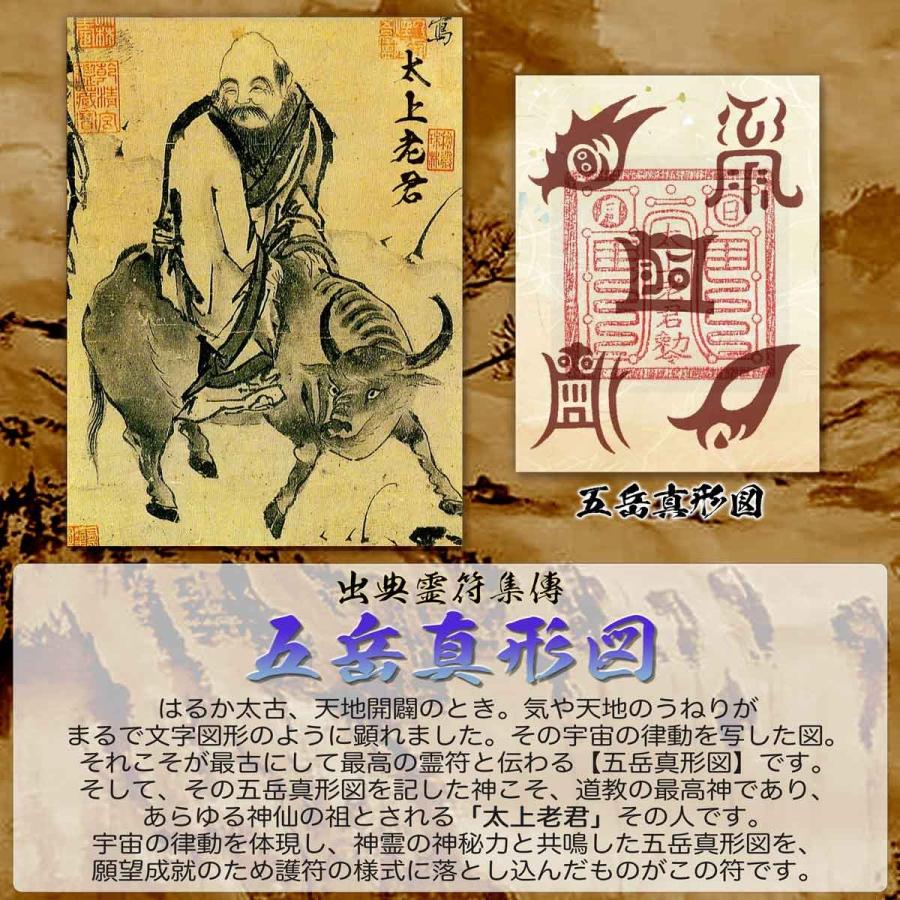 寫
太上老君
乾清宮
月
日
五岳真形図
出典霊符集傳
五岳真形図
はるか太古、天地開闢のとき。気や天地のうねりが
まるで文字図形のように顕れました。その宇宙の律動を写した図。
それこそが最古にして最高の霊符と伝わる【五岳真形図】です。
そして、その五岳真形図を記した神こそ、道教の最高神であり、
あらゆる神仙の祖とされる「太上老君」その人です。
宇宙の律動を体現し、神霊の神秘力と共鳴した五岳真形図を、
願望成就のため護符の様式に落とし込んだものがこの符です。